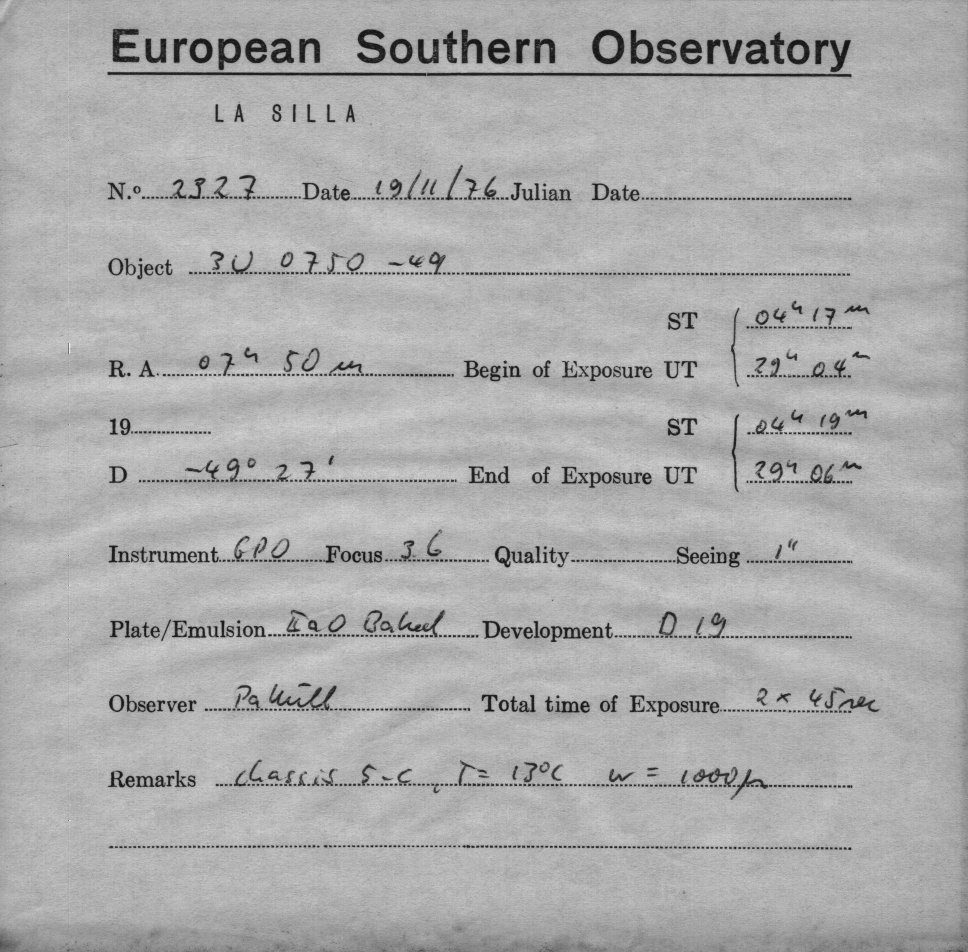 European Southern Observatory
LA SILLA
N.º 2327 Date 19/11/76 Julian Date
Object 3U 0750 -49
ST 04h 17m
R. A. 07h 50m Begin of Exposure UT 29h 04m
19 ST 04h 19m
D -49° 27' End of Exposure UT 29h 06m
Instrument GPO Focus 36 Quality Seeing 1"
Plate/Emulsion IIaO Baked Development D 19
Observer Total time of Exposure 2 x 45 sec
Remarks chassis 5-C, T = 13°C w = 1000µ